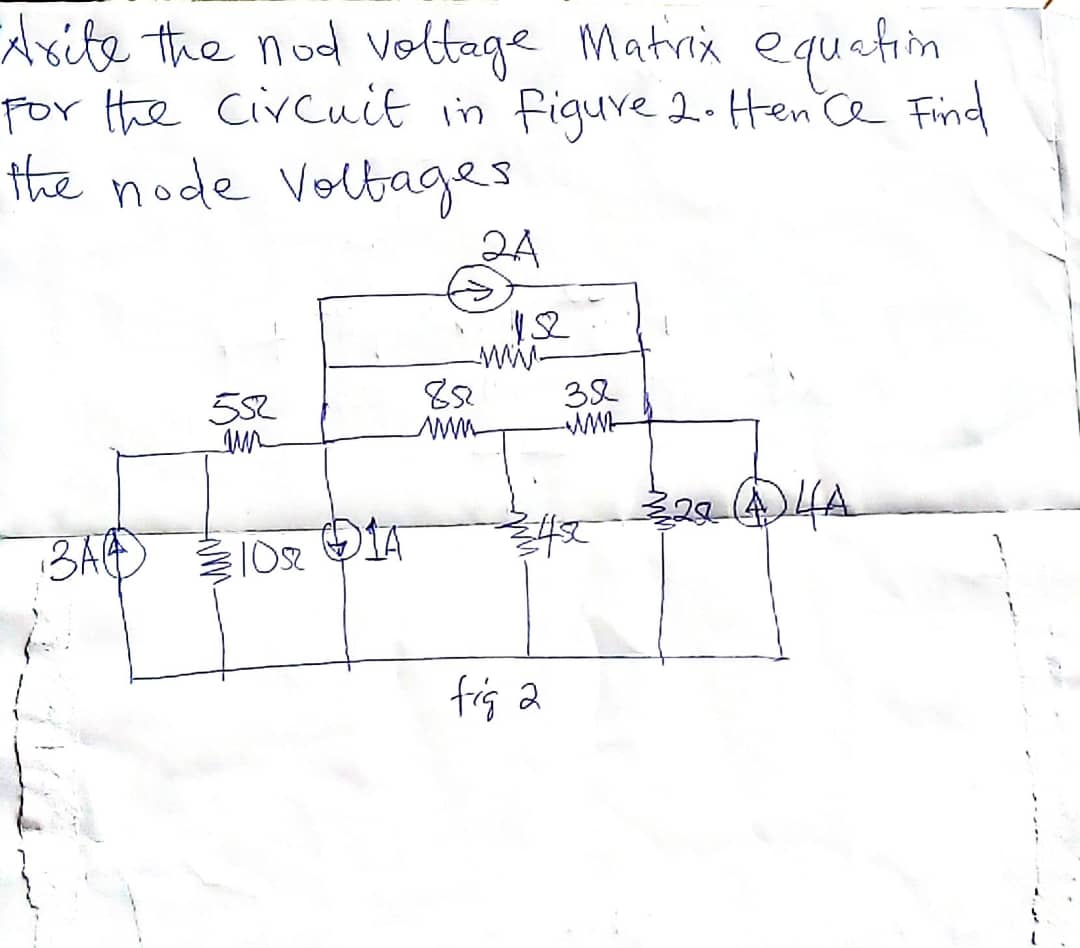 Write the nod voltage Matrix equation
For the Circuit in Figure 2. Hence Find
the node Voltages
2A
1Ω
8Ω 3Ω
5Ω
2Ω 4A
3A 10Ω 1A 4Ω
fig 2